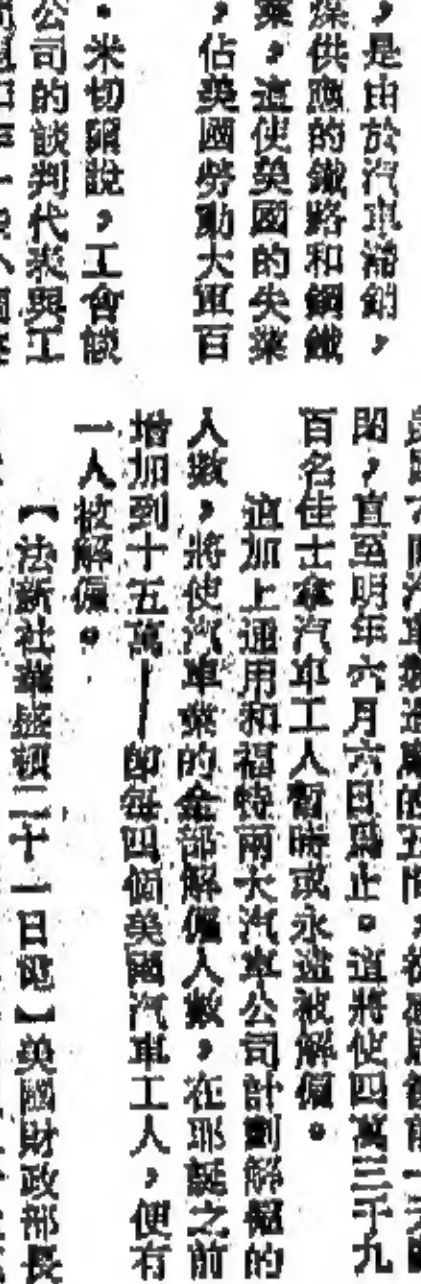 ，是由於汽車滯銷，
煤供應的鐵路和鋼鐵
業，這使美國的失業
，佔美國勞動大軍百
。米切爾說，工會談
公司的談判代表與工
汽車製造廠的五間，
閉，直至明年六月六日爲止。這將使四萬三千九
百名佳士拿汽車工人暫時或永遠被解僱。
這加上通用和福特兩大汽車公司計劃解僱的
人數，將使汽車業的全部解僱人數，在耶誕之前
增加到十五萬——即每四個美國汽車工人，便有
一人被解僱。
【法新社華盛頓二十一日電】美國財政部長